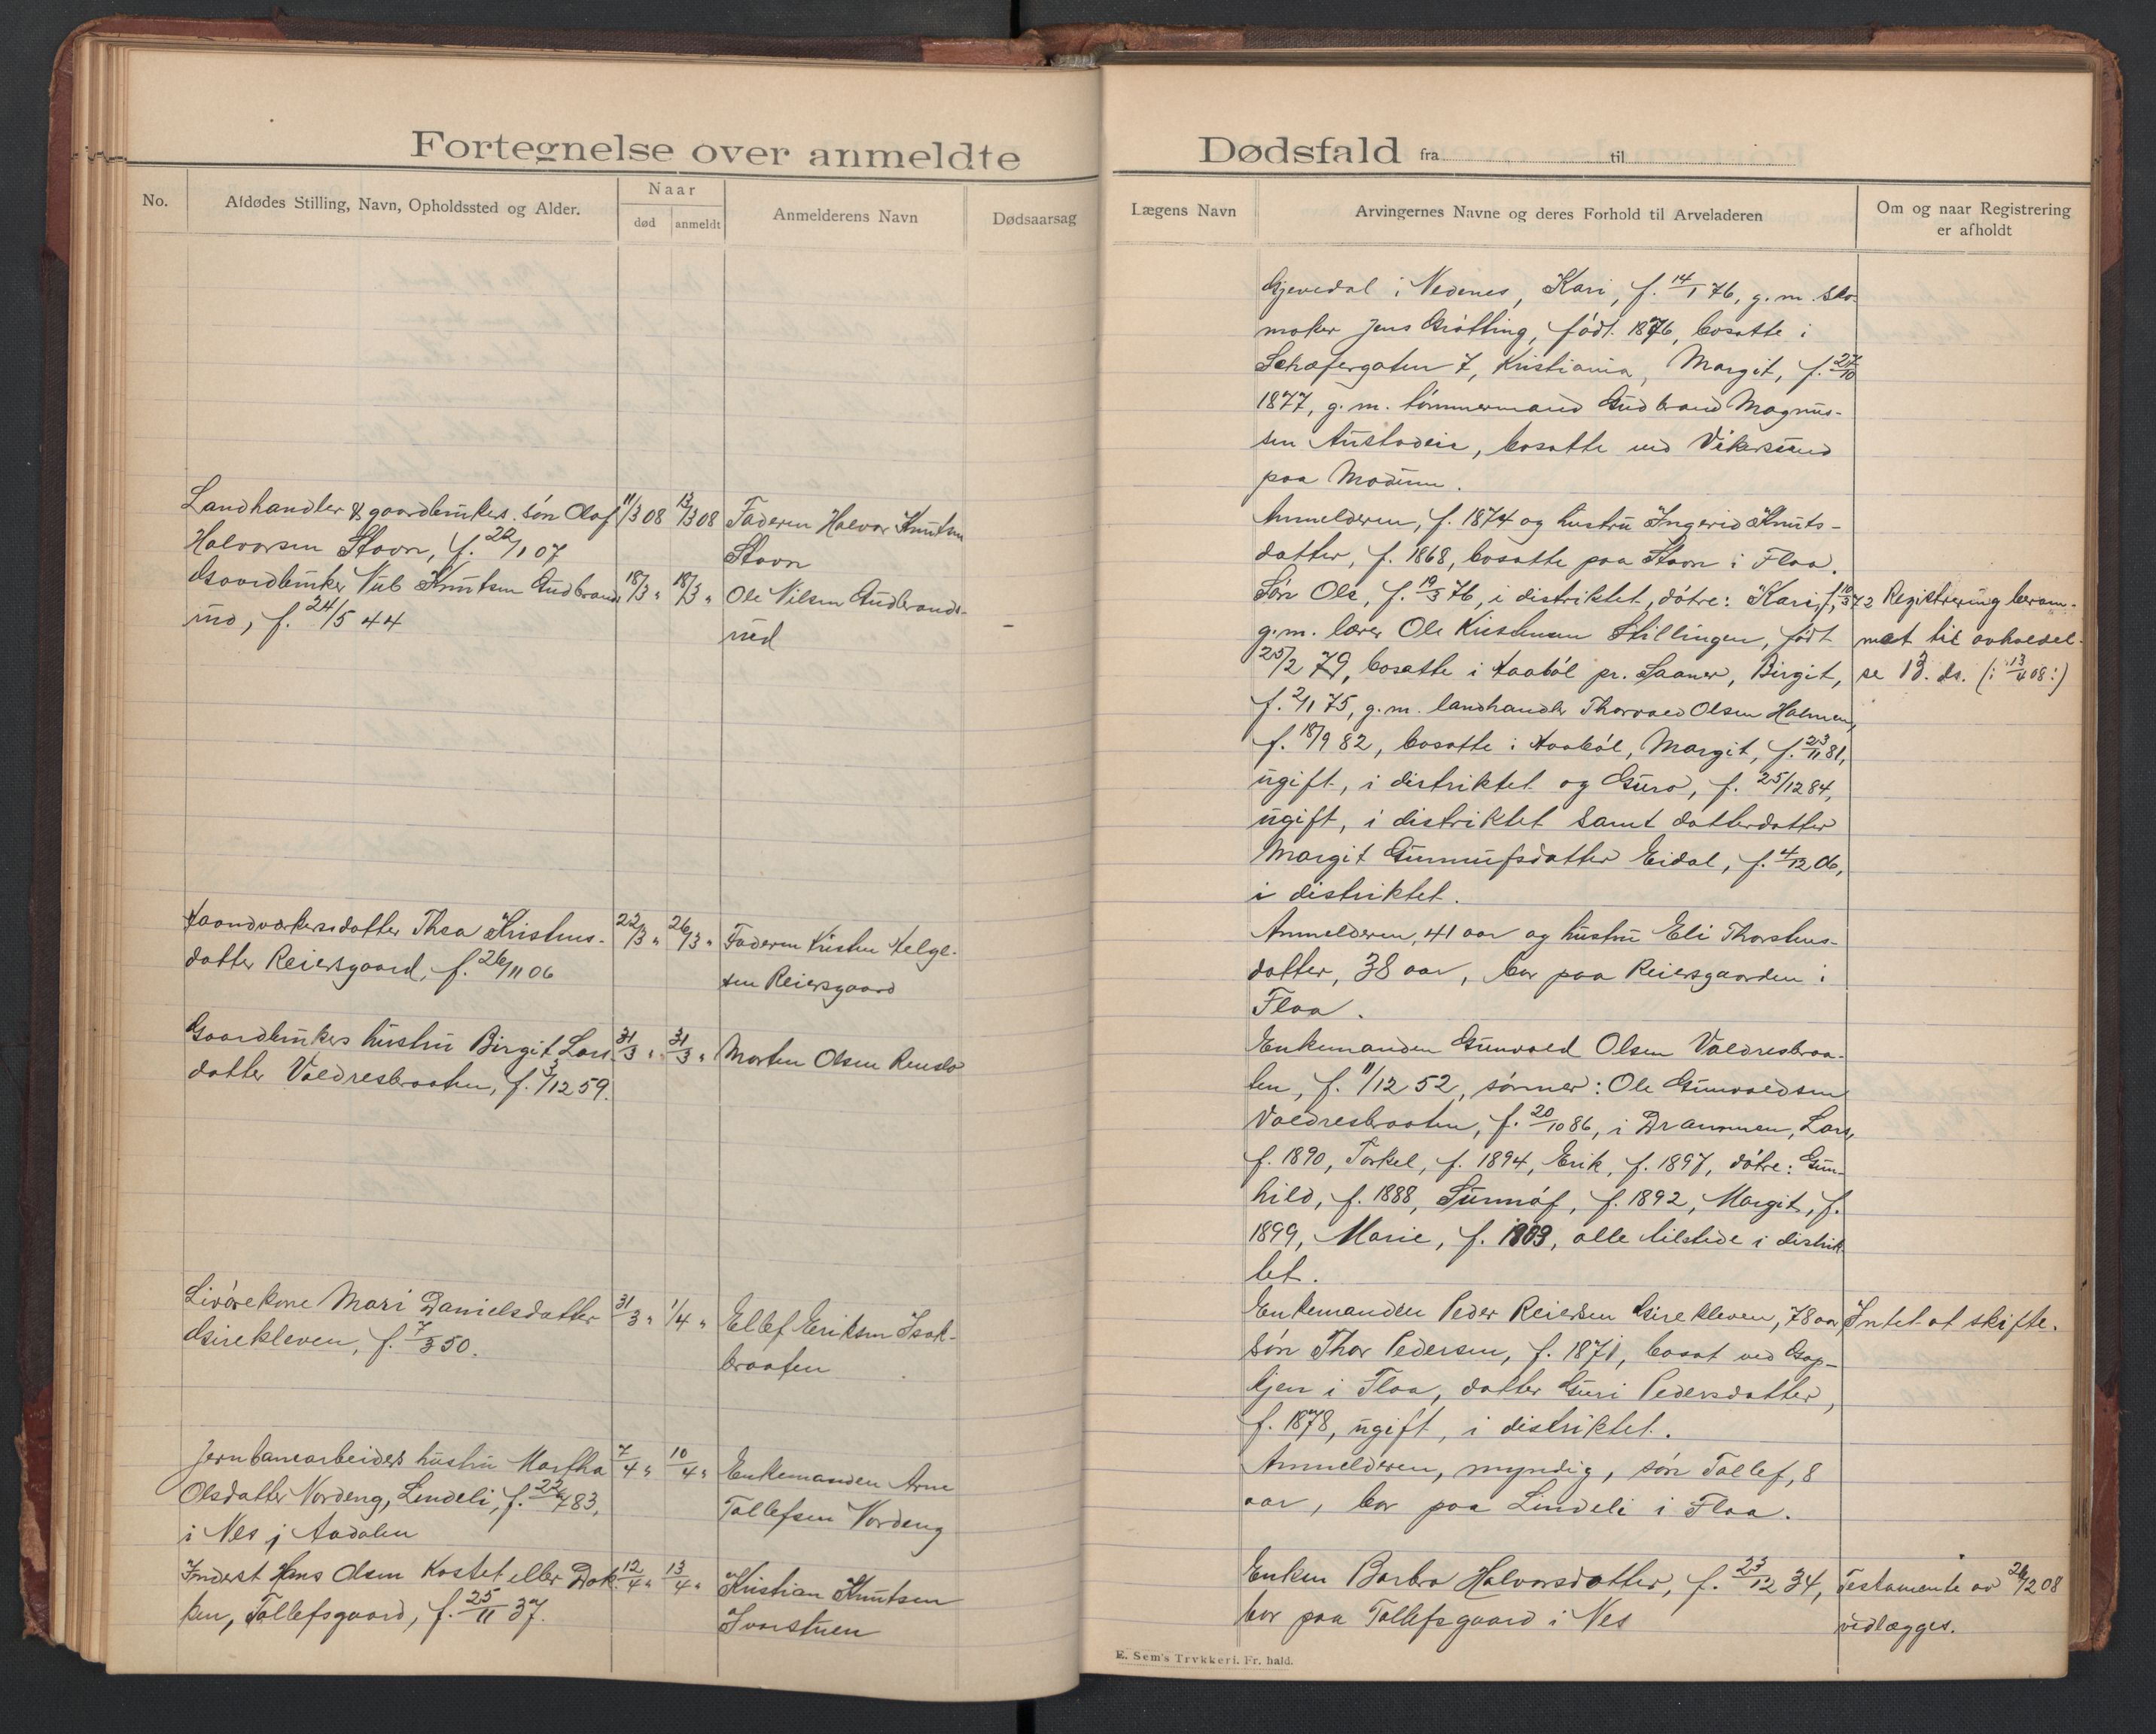 Fortegnelse over anmeldte
No.
Afdødes Stilling, Navn, Opholdssted og Alder.
Naar
død
anmeldt
Anmelderens Navn
Dødsaarsag
Landhandler & gaardbrukers søn Olaf 11/3 08 13/3 08 Faderen Halvor Knutsen
Halvorsen Stavn, f. 22/1 07 Stavn
Gaardbruker Nub Knutsen Gudbrands 18/3 " 18/3 " Ole Nilsen Gudbrands-
rud, f. 24/5 44 rud
Haandverkersdatter Thea Kristens- 22/3 " 26/3 " Faderen Kristen Helge-
datter Reiersgaard, f. 26/11 06 sen Reiersgaard
Gaardbrukers hustru Birgit Lars 31/3 " 31/3 " Morten Olsen Renslo
datter Valdresbraaten, f. 3/12 59.
Livørekone Mari Danielsdatter 31/3 " 1/4 " Ellef Eriksen Isak-
Girekleven, f. 7/3 50. braaten
Jernbanearbeiders hustru Martha 7/4 " 10/4 " Enkemanden Arne
Olsdatter Nordeng, Lendeli, f. 22/4 83, Tollefsen Nordeng
i Nes i Aadalen
Inderst Hans Olsen Kostet eller Dok- 12/4 " 13/4 " Kristian Knutsen
ken, Tollefsgaard, f. 25/11 37. Ivarstuen
Dødsfald fra til
Lægens Navn
Arvingernes Navne og deres Forhold til Arveladeren
Om og naar Registrering
er afholdt
Gjevedal i Nedenes, Kari, f. 14/1 76, g.m. sko-
maker Jens Grøtting, født 1876, bosatte i
Schæfergaten 7, Kristiania, Margit, f. 27/10
1877, g.m. tømmermand Gudbrand Magnus-
sen Austadeie, bosatte ved Vikersund
paa Modum.
Anmelderen, f. 1874 og hustru Ingerid Knuts-
datter, f. 1868, bosatte paa Stavn i Flaa.
Søn Ole, f. 19/3 76, i distriktet, døtre: Kari, f. 10/3 72 Registrering beram-
g.m. lærer Ole Kristensen Stillingen, født met til avholdel-
25/2 79, bosatte i Haabøl pr. Saaner, Birgit, se 13. ds. (: 13/4 08 :)
f. 2/1 75, g.m. landhandler Thorvald Olsen Holmen,
f. 18/9 82, bosatte i Haabøl, Margit, f. 23/11 81,
ugift, i distriktet og Guro, f. 25/12 84,
ugift, i distriktet samt datterdatter
Margit Gunnufsdatter Eidal, f. 4/12 06,
i distriktet.
Anmelderen, 41 aar og hustru Eli Thorstens-
datter, 38 aar, bor paa Reiersgaarden i
Flaa.
Enkemanden Gunvald Olsen Valdresbraa-
ten, f. 11/12 52, sønner: Ole Gunvaldsen
Valdresbraaten, f. 20/10 86, i Drammen, Lars,
f. 1890, Torkel, f. 1894, Erik, f. 1897, døtre: Gun-
hild, f. 1888, Sunnøf, f. 1892, Margit, f.
1899, Marie, f. 1903, alle tilstede i distrik-
tet.
Enkemanden Peder Reiersen Girekleven, 78 aar, Intet at skifte.
søn Thor Pedersen, f. 1871, bosat ved Gop-
ljen i Flaa, datter Guri Pedersdatter,
f. 1878, ugift, i distriktet.
Anmelderen, myndig, søn Tollef, 8
aar, bor paa Lindeli i Flaa.
Enken Barbra Halvorsdatter, f. 23/12 34, Testamente av 26/2 08
bor paa Tollefsgaard i Nes vedlægges.
E. Sem's Trykkeri. Fr. hald.